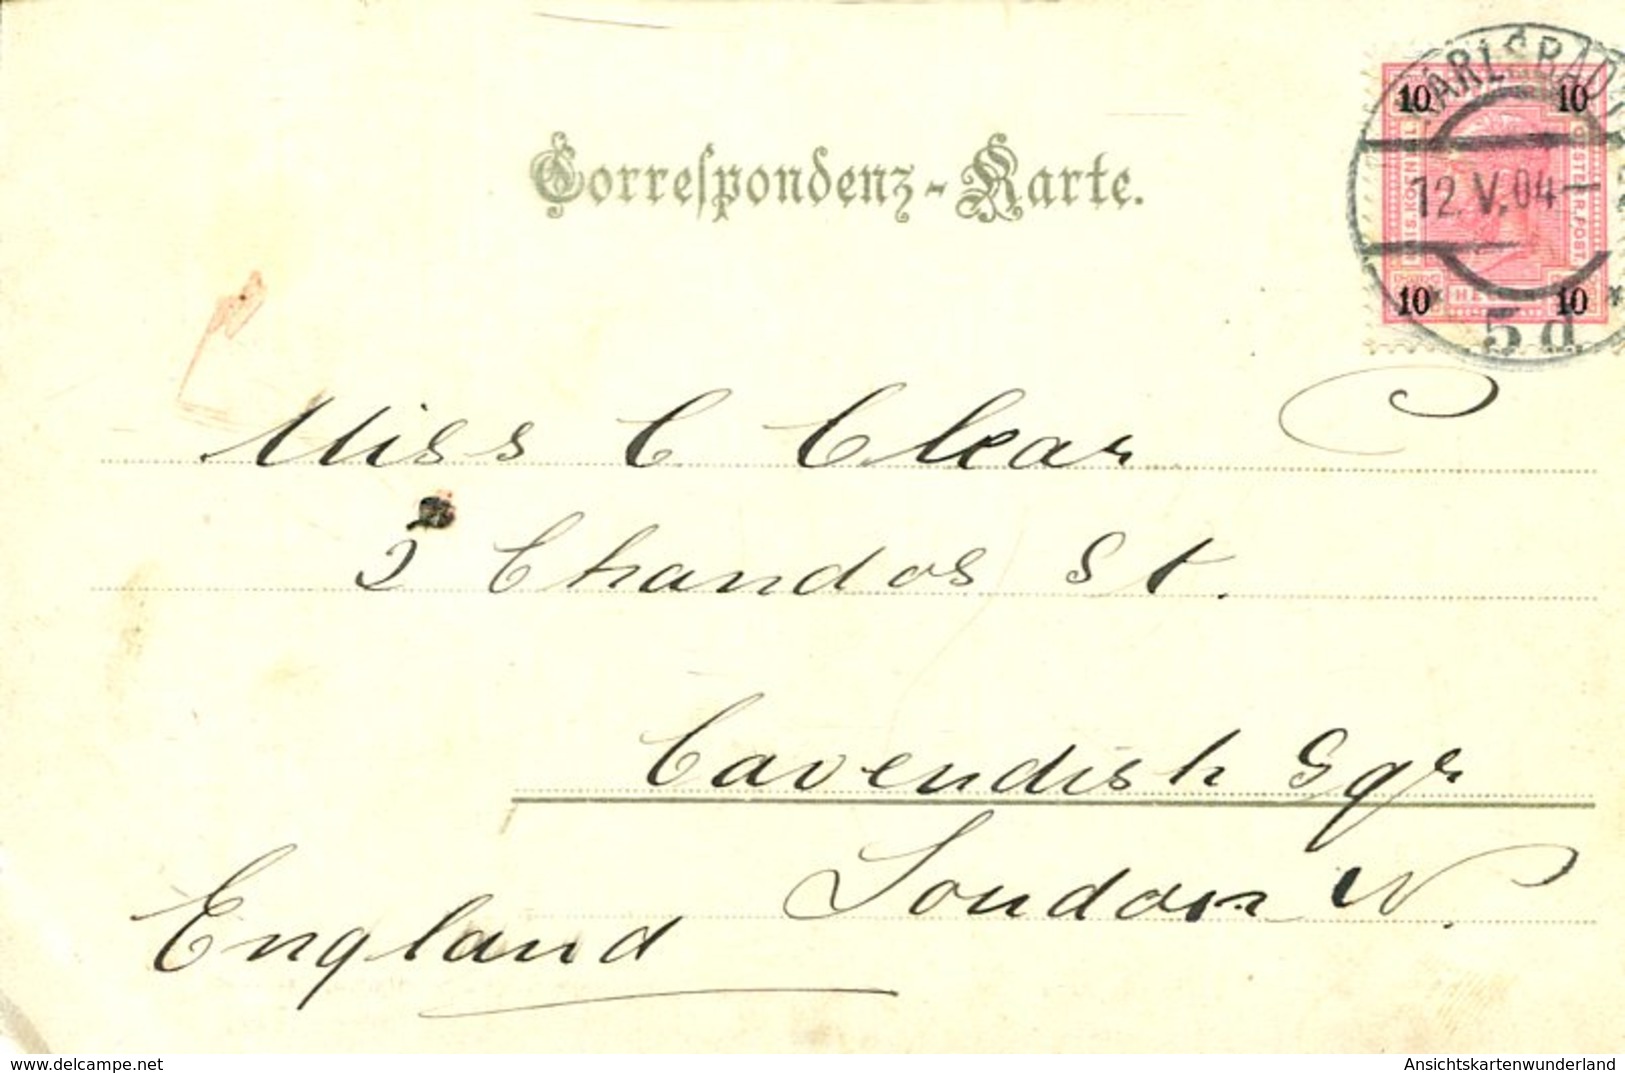 Correspondenz-Karte.
KARLSBAD
10 10
12.V.04
KAIS. KÖNIGL. OESTERR. POST.
10 HELLER 10
5d
Miss C Clear
2 Chandos St.
Cavendish Sqr
London W.
England
www.delcampe.net
Ansichtskartenwunderland